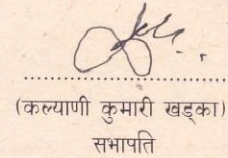 (कल्याणी कुमारी खड्का)
सभापति